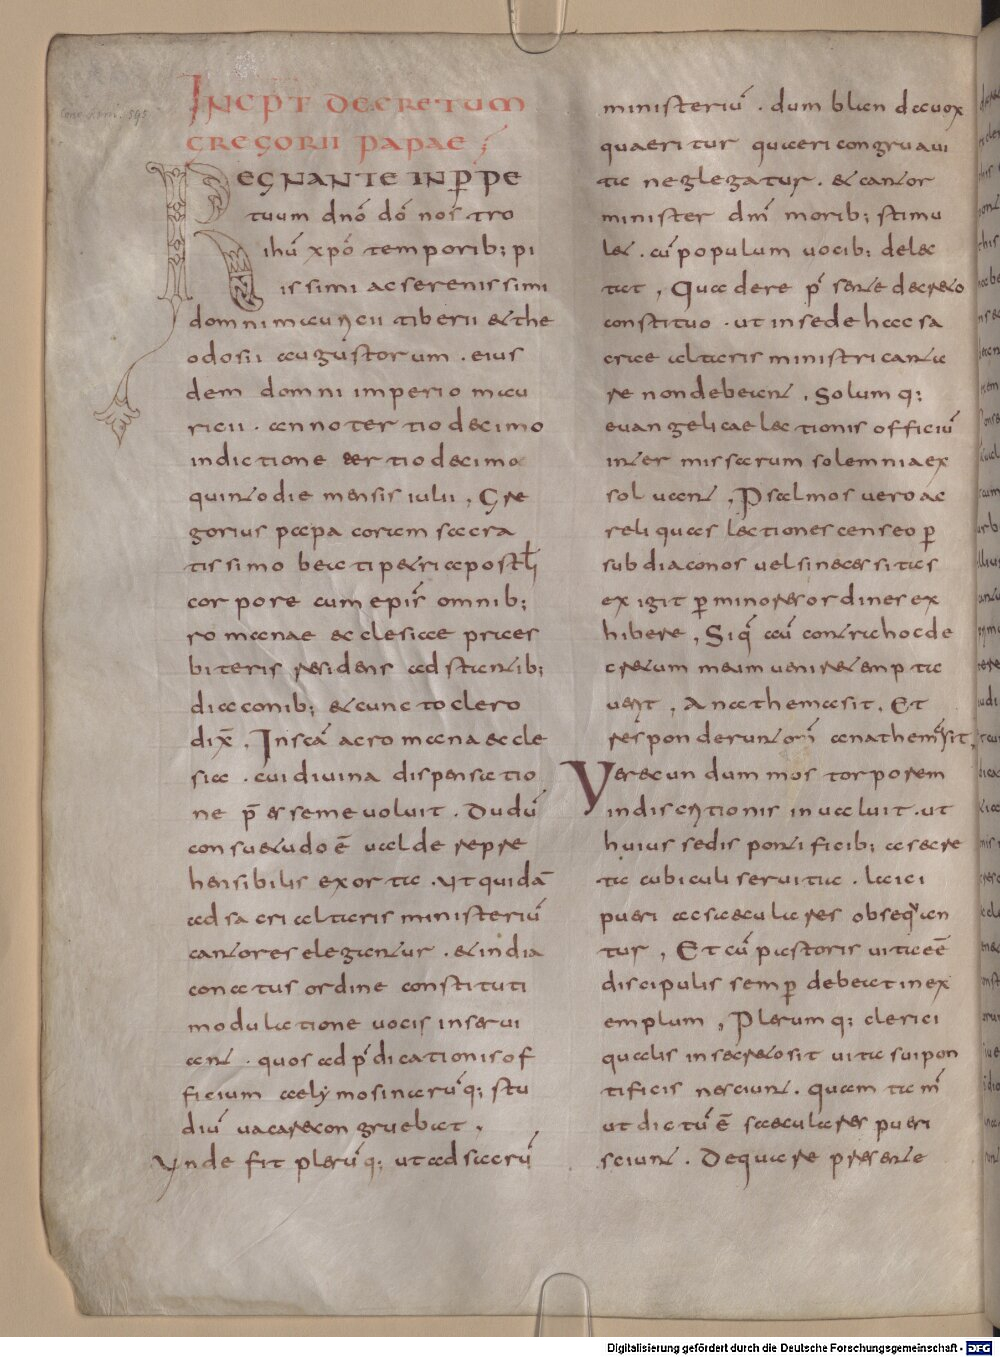 Conc. Rom. 595
INCPT DECRETUM
GREGORII PAPAE
REGNANTE IN PPE
tuum dnō dō nostro
ihū xpō temporib; pi
issimi ac serenissimi
domni mauricii tiberii & the
odosii augustorum . eius
dem domni imperio mau
ricii . anno tertio decimo
indictione tertio decimo
quinto die mensis iulii , Gre
gorius papa coram sacra
tissimo beati petri apostli
corpore cum epis omnib;
romanae ecclesiae prices
biteris residens adstantib;
diaconib; & cuncto clero
dix̄ , In scā ac romana eccle
sia . cui divina dispensatio
ne p̄esse me voluit . Dudū
consuetudo ē valde repre
hensibilis exorta . Ut quidā
ad sacri altaris ministeriū
cantores elegantur . & in dia
conatus ordine constituti
modulatione vocis inservi
ant . quos ad p̄dicationis of
ficium aelymosinarūq; stu
diū vacare congruebat ,
Unde fit plerūq; ut ad sacrū
ministeriū . dum blanda vox
quaeritur quaeri congrua vi
ta neglegatur . & cantor
minister dm̄ morib; stimu
let . cū populum vocib; delec
tat , Qua de re p̄senti decreto
constituo . ut in sede hac sa
cri altaris ministri canta
re non debeant , Solumq;
evangelicae lectionis officiū
inter missarum solemnia ex
solvant , Psalmos vero ac
reliquas lectiones censeo p
subdiaconos vel si necessitas
exigit p minores ordines ex
hibere , Siq̄ aū contra hoc de
cretum meum venire temptа
verit , Anathema sit . Et
responderunt om̄ anathema sit ,
Verecundum mos torporem
indiscretionis invaluit . ut
huius sedis pontificib; ad secre
ta cubiculi servitia . laici
pueri ac saeculares obsequan
tur , Et cū pastoris vita eē
discipulis semp debeat in ex
emplum , Plerumq; clerici
qualis in secreto sit vita sui pon
tificis nesciunt . quam tam̄
ut dictū ē saeculares pueri
sciunt . De qua re praesente
Digitalisierung gefördert durch die Deutsche Forschungsgemeinschaft - DFG